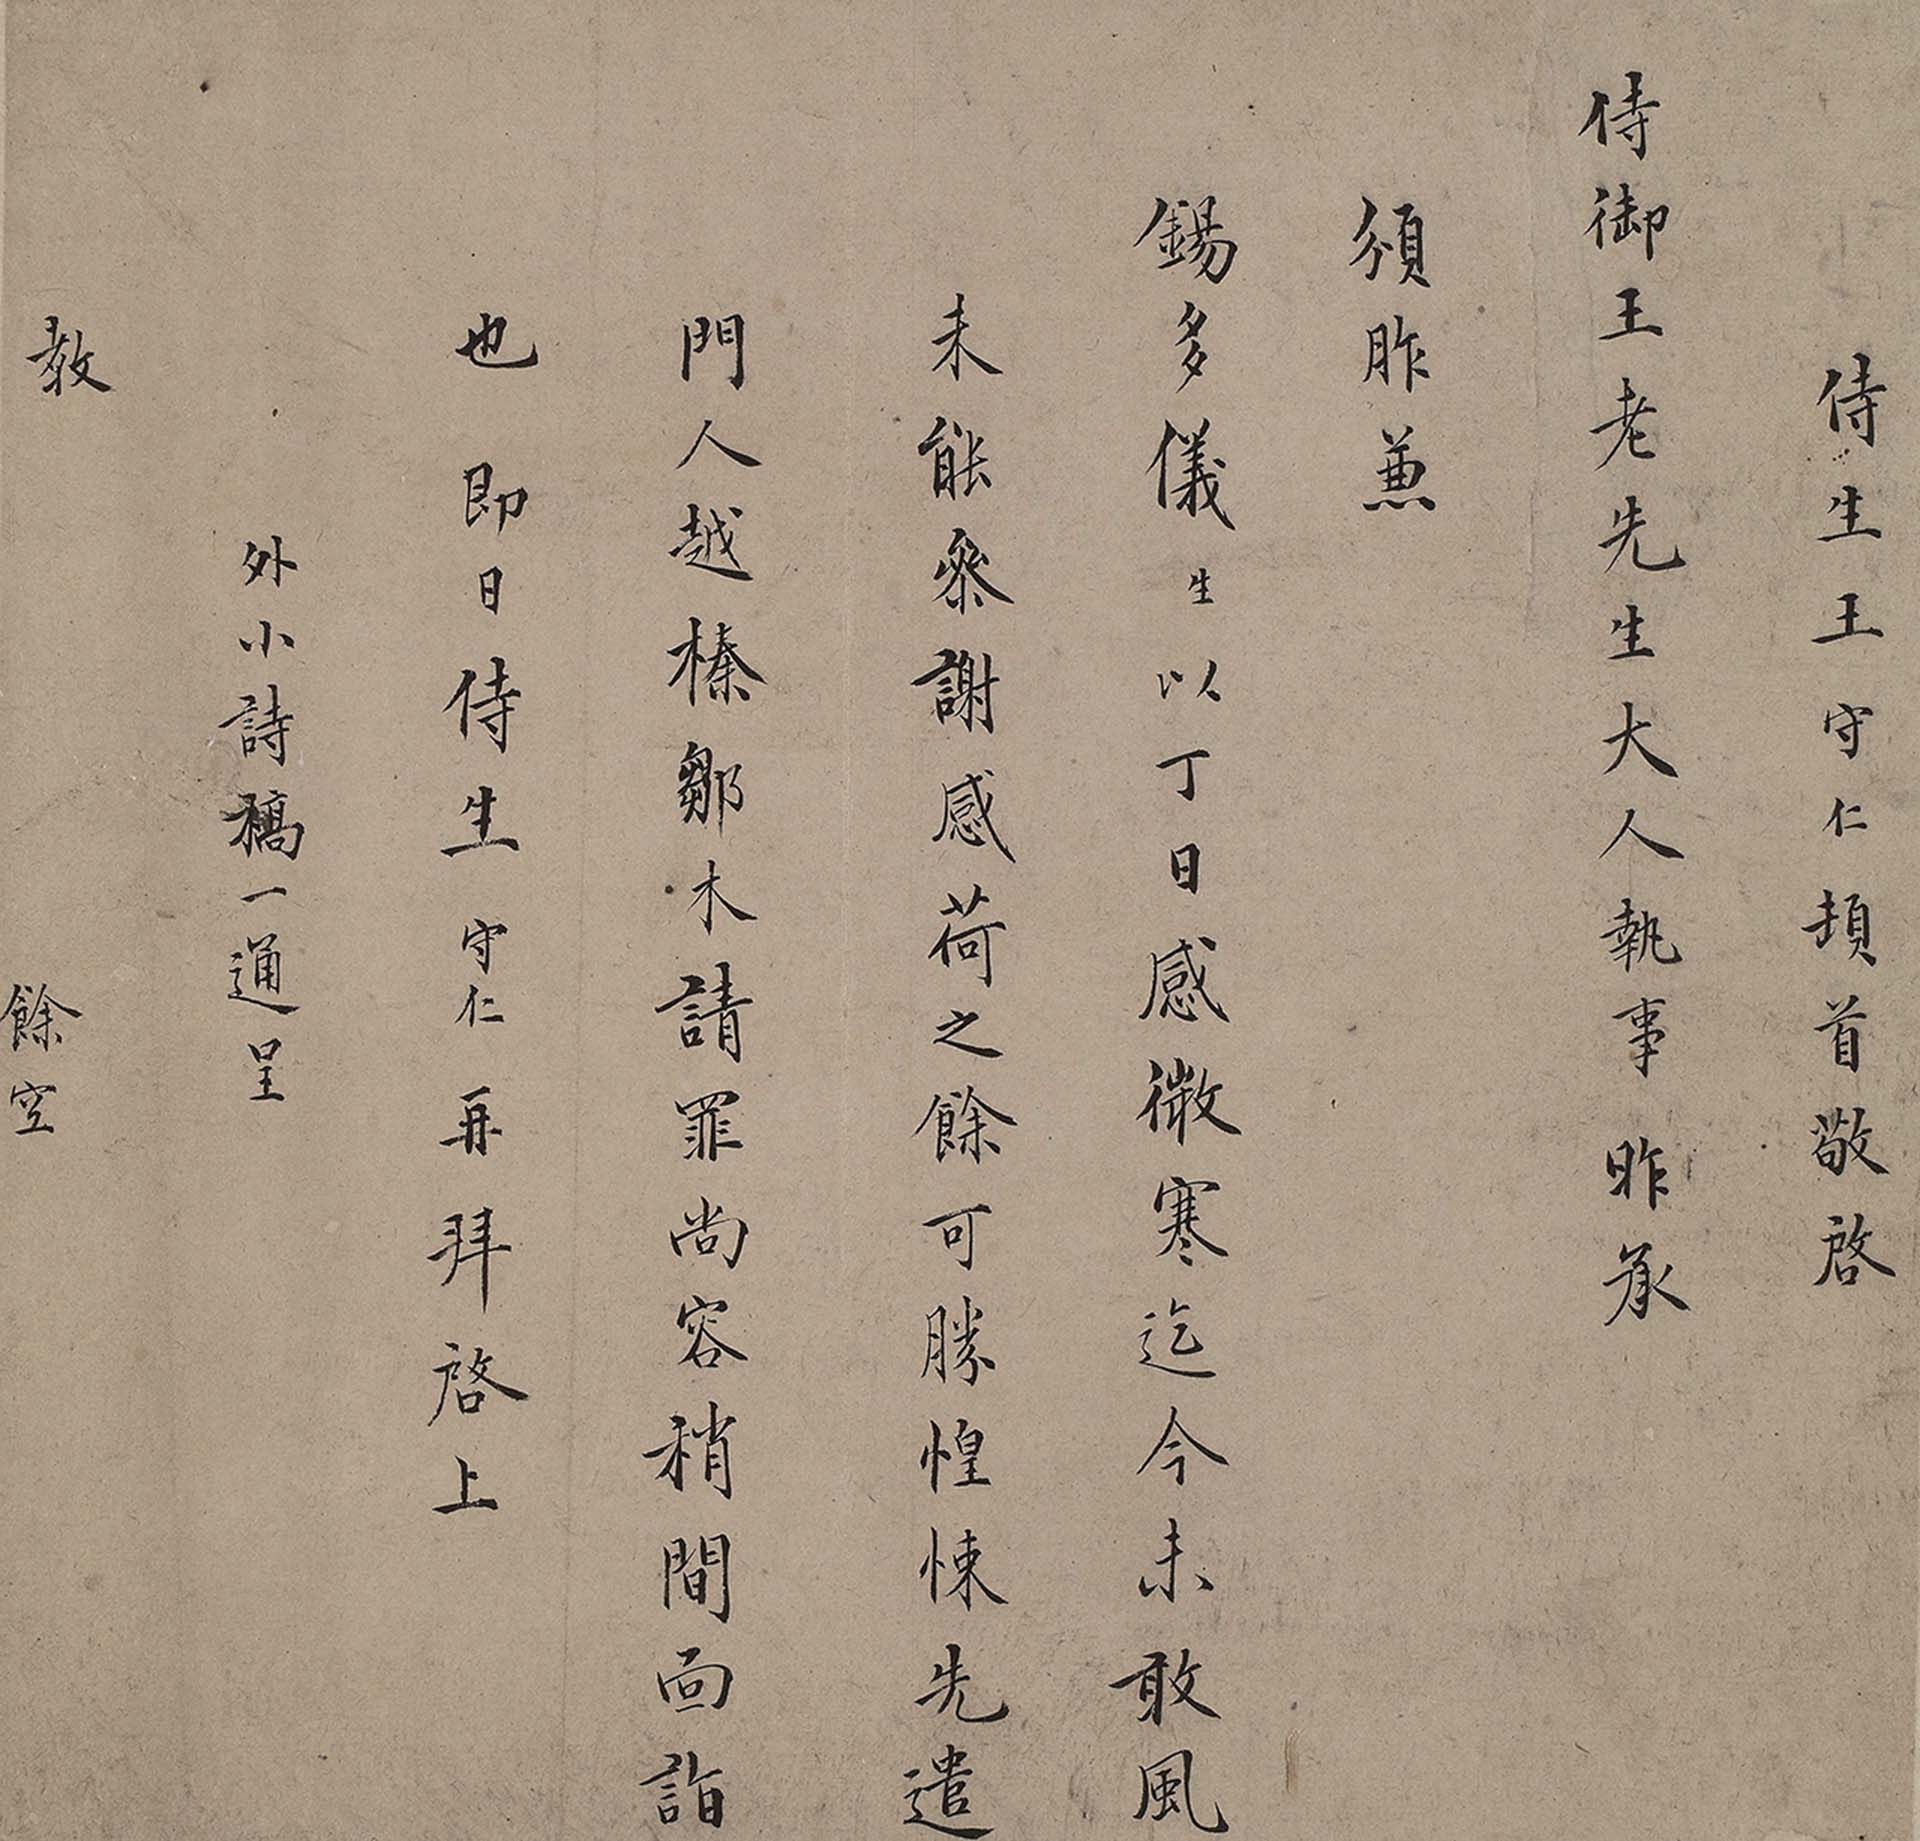 侍生王守仁頓首敬啓
侍御王老先生大人執事 昨承
頒胙兼
錫多儀生以丁日感微寒迄今未敢風
未能參謝感荷之餘可勝惶悚先遣
門人越榛鄒木請罪尚容稍間面詣
也 即日侍生守仁再拜啓上
外小詩稿一通呈
教 餘空